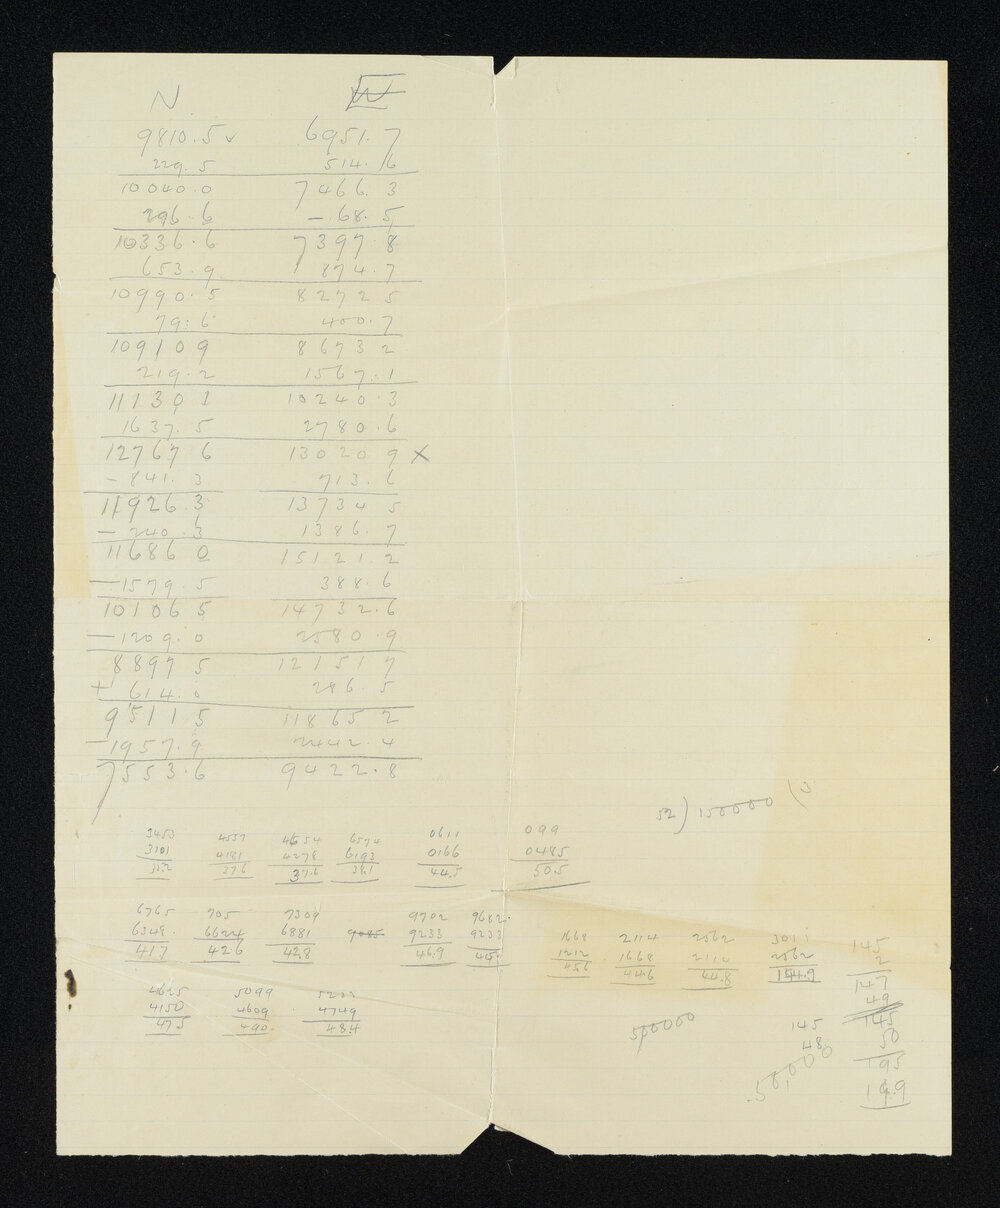 N W
9810.5 ✓ 6951.7
229.5 514.6
10040.0 7466.3
296.6 - 68.5
10336.6 7397.8
653.9 874.7
10990.5 8272 5
79.6 400.7
10910 9 8673 2
219.2 1567.1
11130 1 10240.3
1637.5 2780.6
12767 6 13020 9 X
- 841.3 713.6
11926.3 13734 5
- 240.3 1386.7
11686 0 15121.2
- 1579.5 388.6
10106 5 14732.6
- 1209.0 2580.9
8897 5 12151 7
+ 614.0 286.5
9511 5 11865 2
- 1957.9 2442.4
7553.6 9422.8
52 ) 150000 ( 3
3453 4557 4654 6574 0611 099
3101 4181 4278 6193 0166 0485
35.2 37.6 37.6 38.1 44.5 50.5
6765 705 7309 9702 9682
6348 6624 6881 9085 9233 9233
417 42.6 42.8 46.9 45
1668 2114 2562 3011 145
1212 1668 2114 2562 2
45.6 44.6 44.8 44.9 147
49
4625 5099 5233
4150 4609 4749
47.5 490 48.4
500000 145 145
48 50
50,000 195
149